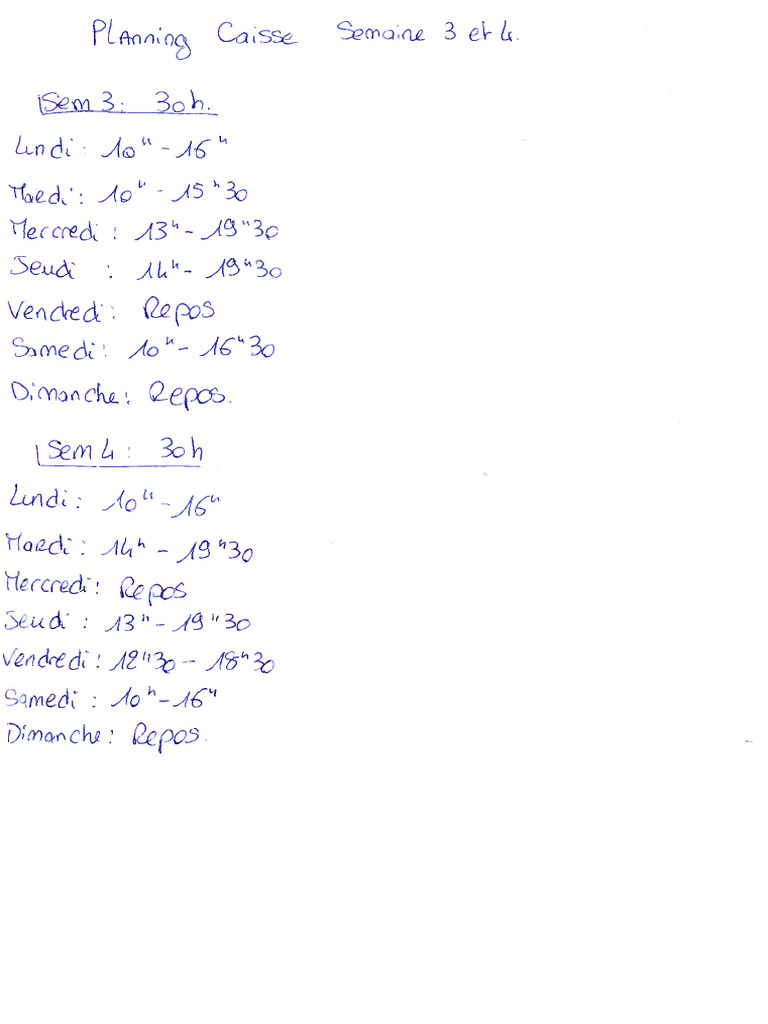 Planning Caisse Semaine 3 et 4.
Sem 3 : 30h.
Lundi : 10h - 16h
Mardi : 10h - 15h30
Mercredi : 13h - 19h30
Jeudi : 14h - 19h30
Vendredi : Repos
Samedi : 10h - 16h30
Dimanche : Repos.
Sem 4 : 30h
Lundi : 10h - 16h
Mardi : 14h - 19h30
Mercredi : Repos
Jeudi : 13h - 19h30
Vendredi : 12h30 - 18h30
Samedi : 10h - 16h
Dimanche : Repos.